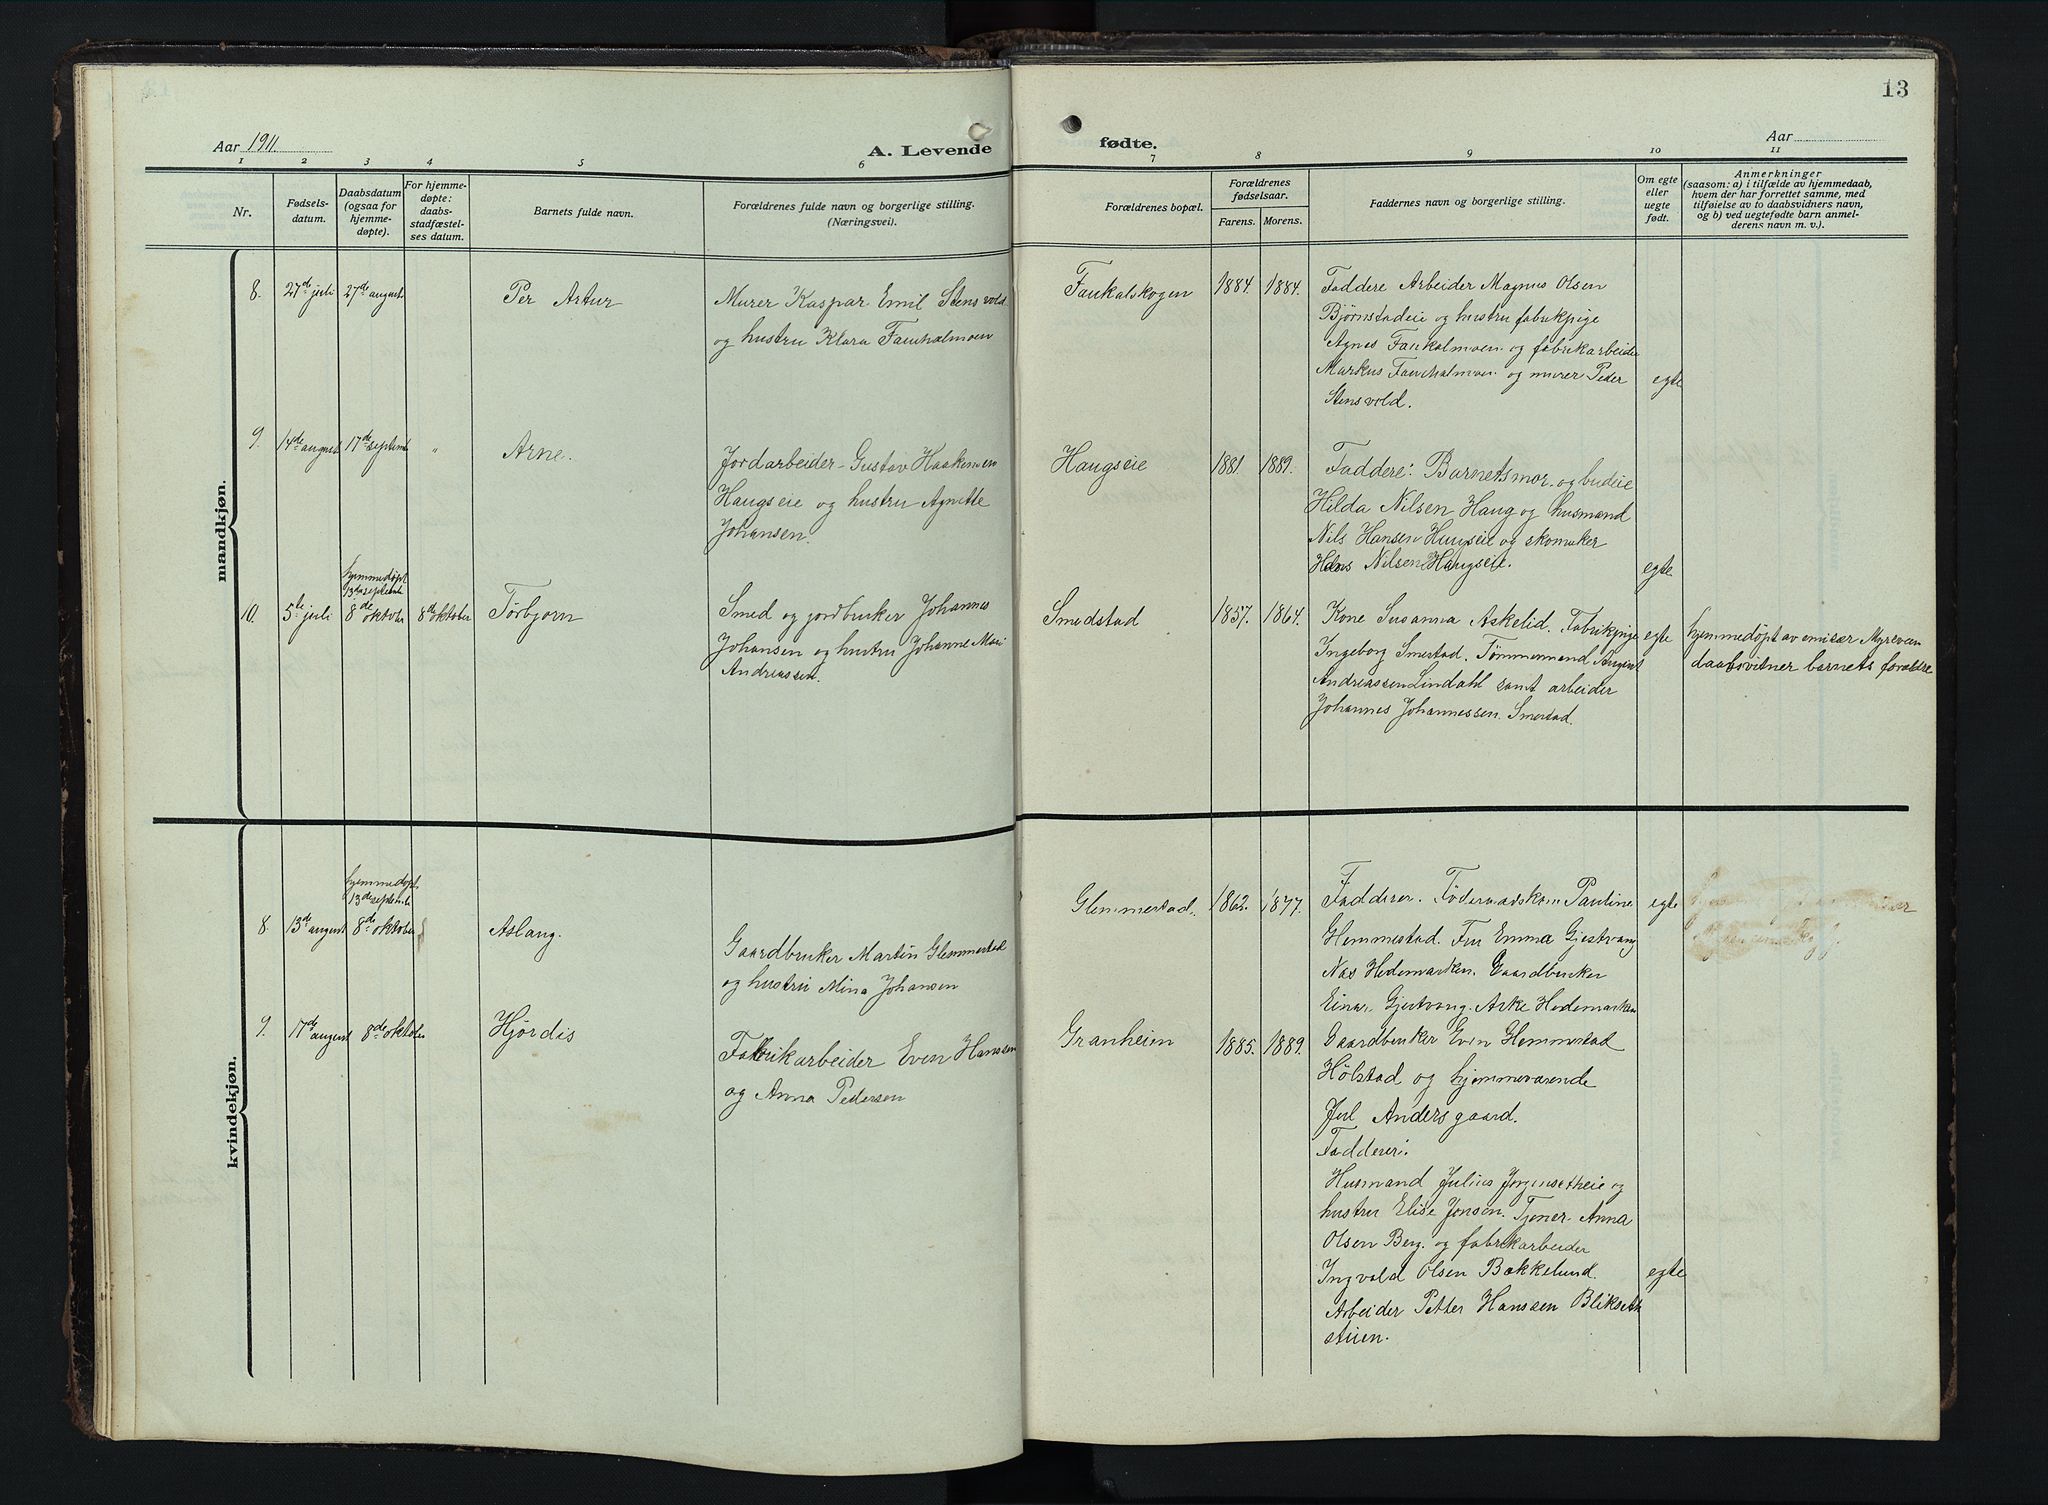 13
Aar 1911.
A. Levende
fødte.
Aar
1 2 3 4 5 6
7 8 9 10 11
Nr.
Fødsels-
datum.
Daabsdatum
(ogsaa for
hjemme-
døpte).
For hjemme-
døpte:
daabs-
stadfæstel-
ses datum.
Barnets fulde navn.
Forældrenes fulde navn og borgerlige stilling.
(Næringsvei).
Forældrenes bopæl.
Forældrenes
fødselsaar.
Farens. Morens.
Faddernes navn og borgerlige stilling.
Om egte
eller
uegte
født.
Anmerkninger
(saasom: a) i tilfælde av hjemmedaab,
hvem der har forrettet samme, med
tilføielse av to daabsvidners navn,
og b) ved uegtefødte barn anmel-
derens navn m. v.).
mandkjøn.
8. 27de juli 27de august
Per Artur
Murer Kaspar Emil Stensvold
og hustru Klara Faukalmoen
Faukalskogen
1884. 1884.
Faddere Arbeider Magnus Olsen
Bjørnstadeie og hustru fabrikpige
Agnes Faukalmoen og fabrikarbeider
Markus Faukalmoen og murer Peder
Stensvold.
egte
9. 14de august 17de septemb "
Arne.
Jordarbeider Gustav Haakensen
Haugseie og hustru Agnette
Johansen.
Haugseie
1881. 1889.
Faddere: Barnets mor og budeie
Hilda Nilsen Haug og husmand
Nils Hansen Haugseie og skomaker
Hans Nilsen Haugseie.
egte
10. 5te juli
hjemmedøpt
13de septemb
8de oktober
8de oktober
Torbjørn
Smed og jordbruker Johannes
Johansen og hustru Johanne Mari
Andreassen.
Smedstad
1857. 1864.
Kone Susanna Askelid. Fabrikpige
Ingeborg Smestad. Tømmermand August
Andreassen Lindahl samt arbeider
Johannes Johannessen. Smestad.
egte
hjemmedøpt av emisær Myrveen
daabsvitner barnets forældre
kvindekjøn.
8. 13de august
hjemmedøpt
13de septemb
8de oktober
Aslaug.
Gaardbruker Martin Glemmestad
og hustru Mina Johansen
Glemmestad.
1862. 1877.
Fadderer. Føderaadskone Pauline
Glemmestad. Fru Emma Gjestvang
Nas Hedemarken. Gaardbruker
Einar Gjestvang. Aske Hedemarken
Gaardbruker Even Glemmestad
Hølstad og hjemmeværende
Jul Andersgaard.
egte
9. 17de august 8de oktober
Hjørdis
Fabrikarbeider Even Hanssen
og Anna Pedersen
Granheien
1885. 1889.
Fadderer:
Husmand Julius Jørgensetheie og
hustru Elise Jonsen. Tjener Anna
Olsen Berg. og fabrikarbeider
Ingvald Olsen Bækkelund.
Arbeider Petter Hanssen Blikset
stuen.
egte